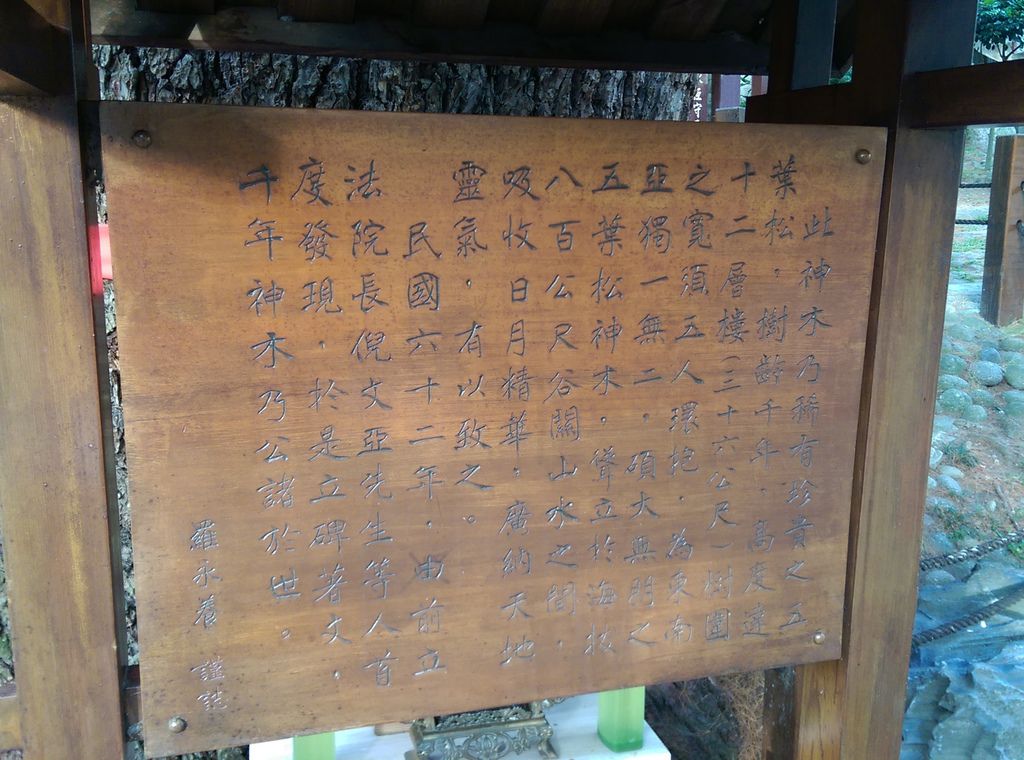 此神木乃稀有珍貴之五
葉松，樹齡千年，高度達
十二層樓（三十六公尺）樹圍
之寬須五人環抱，為東南
亞獨一無二，碩大無朋之
五葉松神木，聳立於海拔
八百公尺谷關山水之間，
吸收日月精華，廣納天地
靈氣，有以致之。
民國六十二年，由前立
法院長倪文亞先生等人首
度發現，於是立碑著文，
千年神木乃公諸於世。
羅永養 謹誌